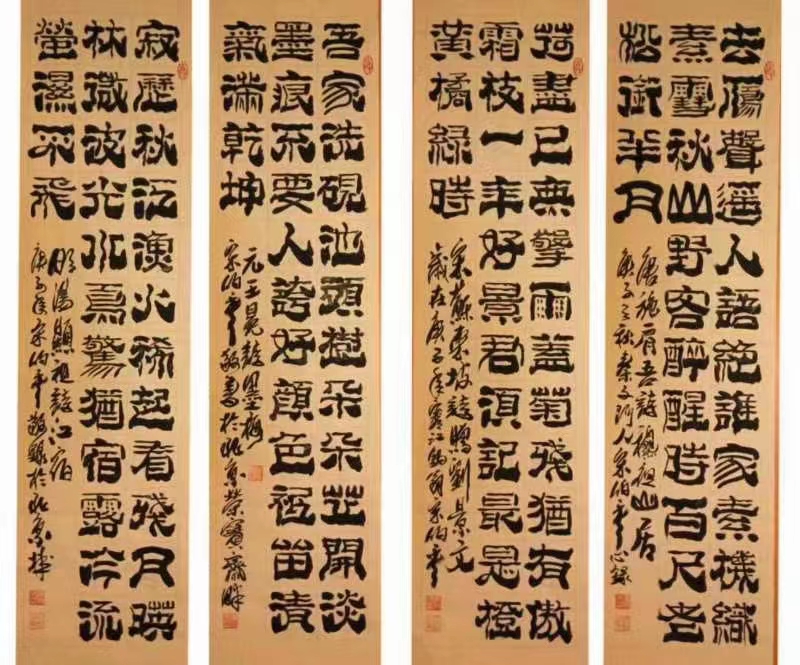 去鴈聲遥人語絕誰家素機織
素雪秋山野客醉醒時百尺老
松銜半月
唐施肩吾詩穐夜山居
庚子之秋秦子阿人宋伯平心録
荷盡已無擎雨蓋菊殘猶有傲
霜枝一年好景君須記最是橙
黃橘緑時
宋蘇東坡詩贈劉景文
歲在庚子年寒江釣翁宋伯平
吾家洗硯池頭樹朵朵花開淡
墨痕不要人誇好顏色祗留清
氣滿乾坤
元王冕詩墨梅
宋伯平敬書於北京榮寶齋畔
寂歷秋江漁火稀起看殘月映
林微波光水鳥驚猶宿露冷流
螢濕不飛
明湯顯祖詩江宿
庚子年宋伯平敬錄於北京